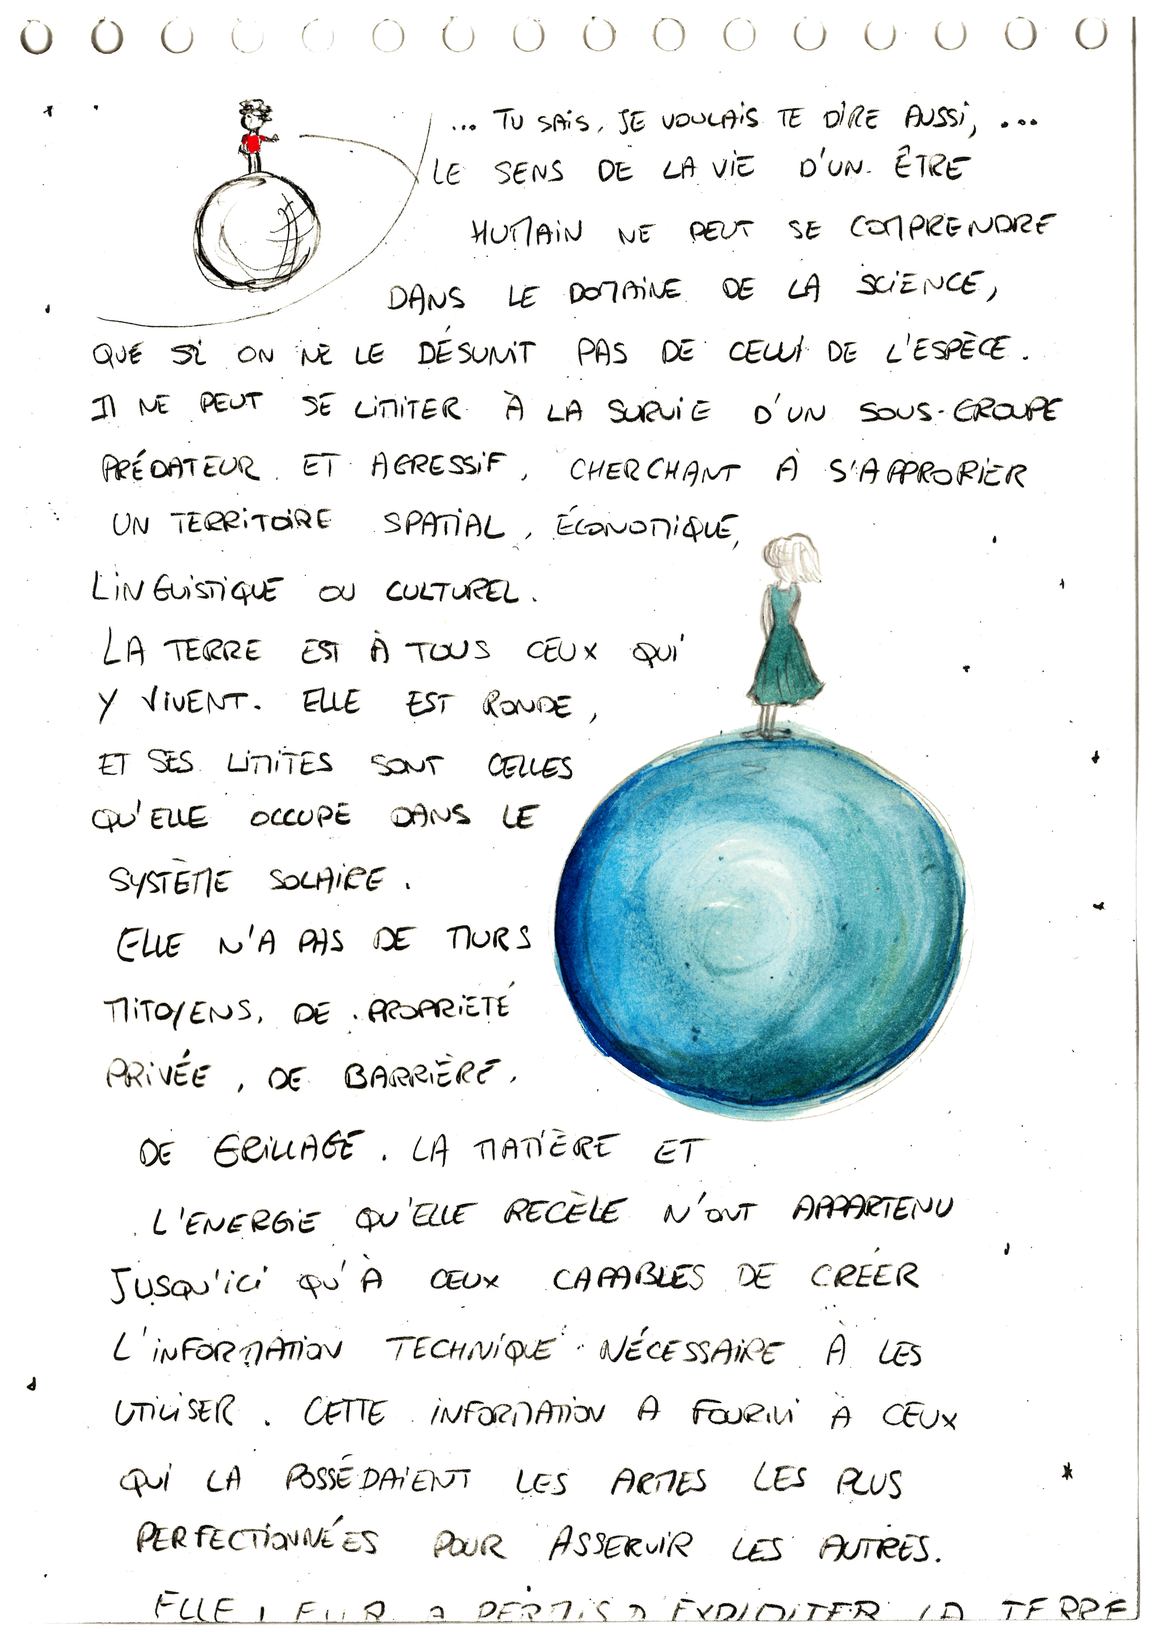 ... TU SAIS, JE VOULAIS TE DIRE AUSSI, ...
LE SENS DE LA VIE D'UN ÊTRE
HUMAIN NE PEUT SE COMPRENDRE
DANS LE DOMAINE DE LA SCIENCE,
QUE SI ON NE LE DÉSUNIT PAS DE CELUI DE L'ESPÈCE.
IL NE PEUT SE LIMITER À LA SURVIE D'UN SOUS-GROUPE
PRÉDATEUR ET AGRESSIF, CHERCHANT À S'APPRORIER
UN TERRITOIRE SPATIAL, ÉCONOMIQUE,
LINGUISTIQUE OU CULTUREL.
LA TERRE EST À TOUS CEUX QUI
Y VIVENT. ELLE EST RONDE,
ET SES LIMITES SONT CELLES
QU'ELLE OCCUPE DANS LE
SYSTÈME SOLAIRE.
ELLE N'A PAS DE MURS
MITOYENS, DE PROPRIÉTÉ
PRIVÉE, DE BARRIÈRE,
DE GRILLAGE. LA MATIÈRE ET
L'ENERGIE QU'ELLE RECÈLE N'ONT APPARTENU
JUSQU'ICI QU'À CEUX CAPABLES DE CRÉER
L'INFORMATION TECHNIQUE NÉCESSAIRE À LES
UTILISER. CETTE INFORMATION A FOURNI À CEUX
QUI LA POSSÉDAIENT LES ARMES LES PLUS
PERFECTIONNÉES POUR ASSERVIR LES AUTRES.
ELLE LEUR A PERMIS D'EXPLOITER LA TERRE